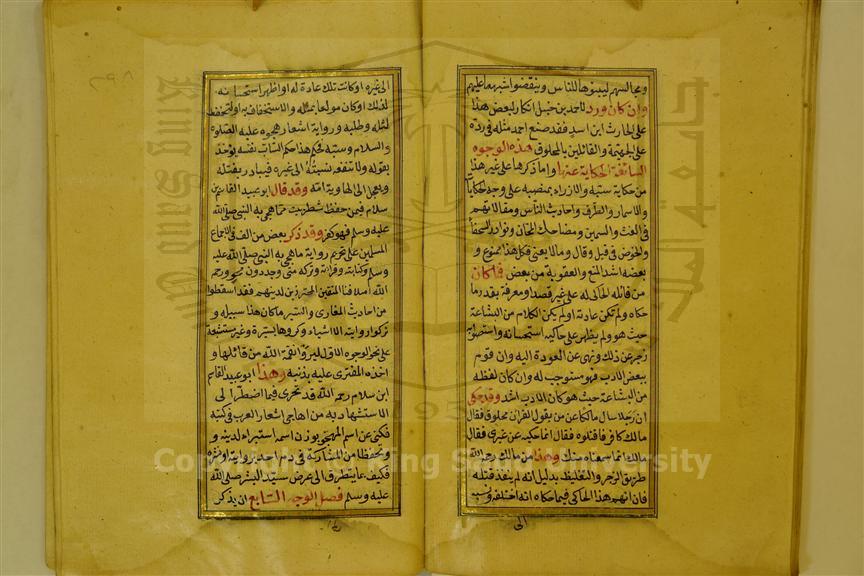 ومجالسهم ليبينوها للناس وينقضوا شبهها عليهم
وان كان ورد لاحمد بن حنبل انكار لبعض هذا
على الحارث ابن اسد فقد صنع احمد مثله في رده
على الجهمية والقائلين بالمخلوق فهذه الوجوه
السائغة الحكاية عنها واما ذكرها على غير هذا
من حكاية سبه والازراء بمنصبه على وجه الحكايا
والاسمار والطرف واحاديث الناس ومقالاتهم
في الغث والسمين ومضاحك المجان ونوادر السخفا
والخوض في قيل وقال وما لا يعني فكل هذا ممنوع و
بعضه اشد في المنع والعقوبة من بعض فما كان
من قائله الحاكي له على غير قصد او معرفة بقدر ما
حكاه ولم تكن عادته او لم يكن الكلام من البشاعة
حيث هو ولم يظهر على حاكيه استحسانه واستصوابه
زجر عن ذلك ونهى عن العودة اليه وان قوم
ببعض الادب فهو مستوجب له وان كان لفظه
من البشاعة حيث هو كان الادب اشد وقد حكي
ان رجلا سال مالكا عن من يقول القران مخلوق فقال
مالك كافر فاقتلوه فقال انما حكيته عن غيري فقال
مالك انما سمعناه منك وهذا من مالك رحمه الله
طريق الزجر والتغليظ بدليل انه لم ينفذ قتله
فان اتهم هذا الحاكي فيما حكاه انه اختلقه ونسبه
الى
الى غيره او كانت تلك عادة له او اظهر استحسانه
لذلك او كان مولعا بمثله والاستخفاف به او التحفظ
لمثله وطلبه و رواية اشعار هجوه عليه الصلوة
والسلام وسبه فحكم هذا حكم الساب نفسه يؤخذ
بقوله ولا تنفعه نسبته الى غيره فيبادر بقتله
ويعجل الى الهاوية امه وقد قال ابو عبيد القاسم بن
سلام فيمن حفظ شطر بيت مما هجي به النبي صلى الله
عليه وسلم فهو كفر وقد ذكر بعض من الف في الاجماع
المسلمين على تحريم رواية ما هجي به النبي صلى الله عليه
وسلم وكتابته وقراءته وتركه متى وجد دون محو ورحم
الله اسلافنا المتقين المتحرزين لدينهم فقد اسقطوا
من احاديث المغازي والسير ما كان هذا سبيله و
تركوا روايته الا اشياء ذكروها يسيرة وغير مستبشعة
على نحو الوجوه الاول ليروا نقمة الله من قائلها و
اخذه المفترى عليه بذنبه وهذا ابو عبيد القاسم
ابن سلام رحمه الله قد تحرى فيما اضطر الى
الاستشهاد به من اهاجي اشعار العرب في كتبه
فكنى عن اسم المهجو بوزن اسمه استبراء لدينه و
وتحفظا من المشاركة في ذم احد بروايته او نشره
فكيف بما يتطرق الى عرض سيد البشر صلى الله
عليه وسلم فصل الوجه السابع ان يذكر
Copyright © King Saud University
جامعة الملك
King Saud
195